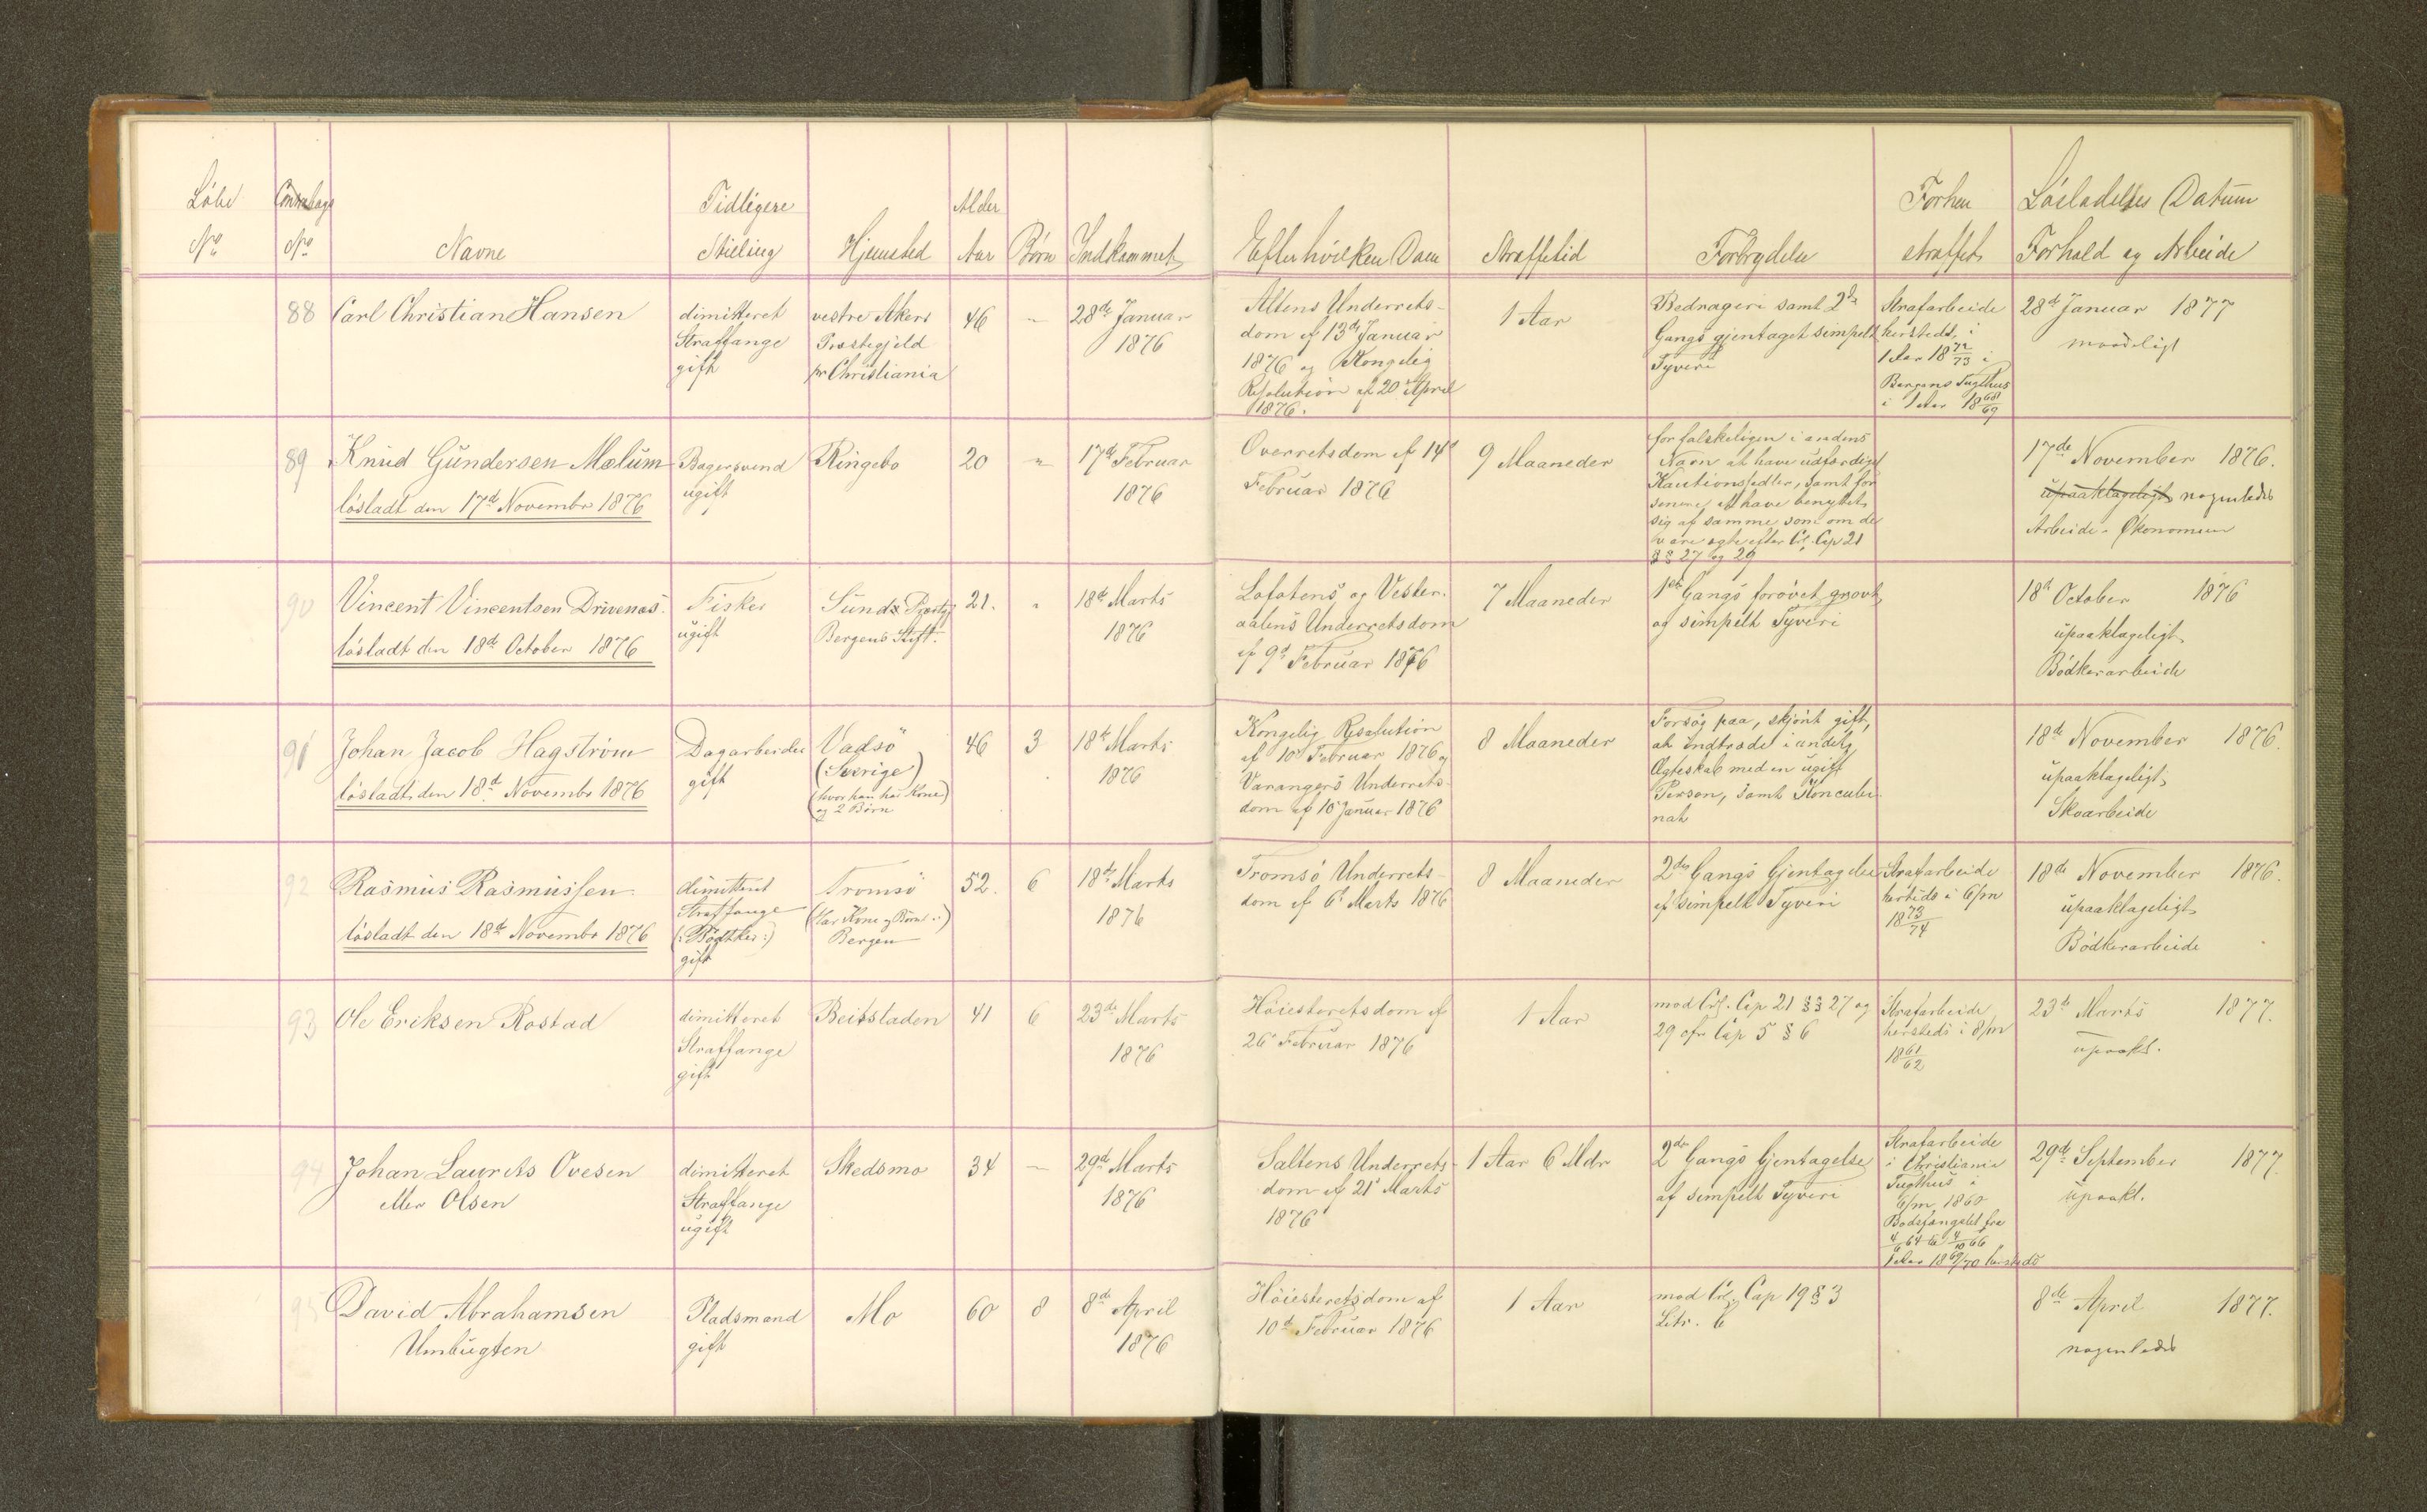 Løbe
No
No
Navne
Tidligere
Stilling
Hjemsted
Alder
Aar
Børn
Indkommet
Efter hvilken Dom
Straffetid
Forbrydelse
Forhen
straffet
Løsladelses Datum
Forhold og Arbeide
88
Carl Christian Hansen
dimitteret
Straffange
gift
vestre Akers
Præstegjeld
pr Christiania
46
"
28de Januar
1876
Altens Underrets-
dom af 13de Januar
1876 og Kongelig
Resolution af 20 April
1876.
1 Aar
Bedrageri samt 2de
Gangs gjentaget simpelt
Tyveri
Strafarbeide
hersteds i
1 Aar 18 72/73 i
Bergens Tugthus
i 1 Aar 18 68/69
28de Januar 1877
maadeligt
89
Knud Gundersen Mælum
løsladt den 17de Novembr 1876
Bagersvend
ugift
Ringebo
20
"
17de Februar
1876
Overretsdom af 14d
Februar 1876
9 Maaneder
for falskeligen i andens
Navn at have udfærdiget
Kautionssedler, samt for
senere at have benyttet
sig af samme, som om de
vare ægte efter Crl. Cap 21
§§ 27 og 29
17de November 1876.
upaaklageligt nogenledes
Arbeide - Økonomien
90
Vincent Vincentsen Drivenæs.
løsladt den 18de October 1876
Fisker
ugift
Sunds Præstg
Bergens Stift.
21.
"
18de Marts
1876
Lofotens og Vester-
aalens Underretsdom
af 9d Februar 1876
7 Maaneder
1ste Gangs forøvet grovt
og simpelt Tyveri
18d October 1876
upaaklageligt
Bødkerarbeide
91
Johan Jacob Hagstrøm
løsladt den 18d Novembr 1876
Dagarbeider
gift
Vadsö
(Sverige)
(hvor han har Kone)
og 2 Børn
46
3
18de Marts
1876
Kongelig Resolution
af 10d Februar 1876 og
Varangers Underrets-
dom af 10 Januar 1876
8 Maaneder
Forsøg paa, skjønt gift,
at indtræde i andet
Ægteskab med en ugift
Person, samt Koncubi-
nat
18de November 1876.
upaaklageligt,
Skoarbeide
92
Rasmus Rasmussen
løsladt den 18de Novembr 1876
dimitteret
Straffange
(:Bødtker:)
gift
Tromsö
(Har Kone og Børn i)
Bergen
52.
6
18de Marts
1876
Tromsö Underrets-
dom af 6d Marts 1876
8 Maaneder
2den Gangs Gjentagelse
af simpelt Tyveri
Strafarbeide
hersteds i 6/m
18 73/74
18de November 1876.
upaaklageligt
Bødkerarbeide
93
Ole Eriksen Rostad
dimitteret
Straffange
gift
Beitstaden
41
6
23de Marts
1876
Høiesteretsdom af
26d Februar 1876
1 Aar
mod Crl. Cap 21 §§ 27 og
29 cfr Cap 5 § 6
Strafarbeide
hersteds i 8/m
18 61/62
23de Marts 1877.
upaakl.
94
Johan Laurits Ovesen
eller Olsen
dimitteret
Straffange
ugift
Skedsmo
34
—
29de Marts
1876
Saltens Underrets-
dom af 21d Marts
1876
1 Aar 6 Mdr
2den Gangs Gjentagelse
af simpelt Tyveri
Strafarbeide
i Christiania
Tugthus i
6/m 1860
Bodsfængslet fra
4/6 64 til 4/10 66
1 Aar 18 69/70 hersteds
29de September 1877.
upaakl.
95
David Abrahamsen
Umbugten
Pladsmand
gift
Mo
60
8
8de April
1876
Høiesteretsdom af
10d Februar 1876
1 Aar
mod Crl. Cap 19 § 3
Litr. b
8de April 1877.
nogenledes